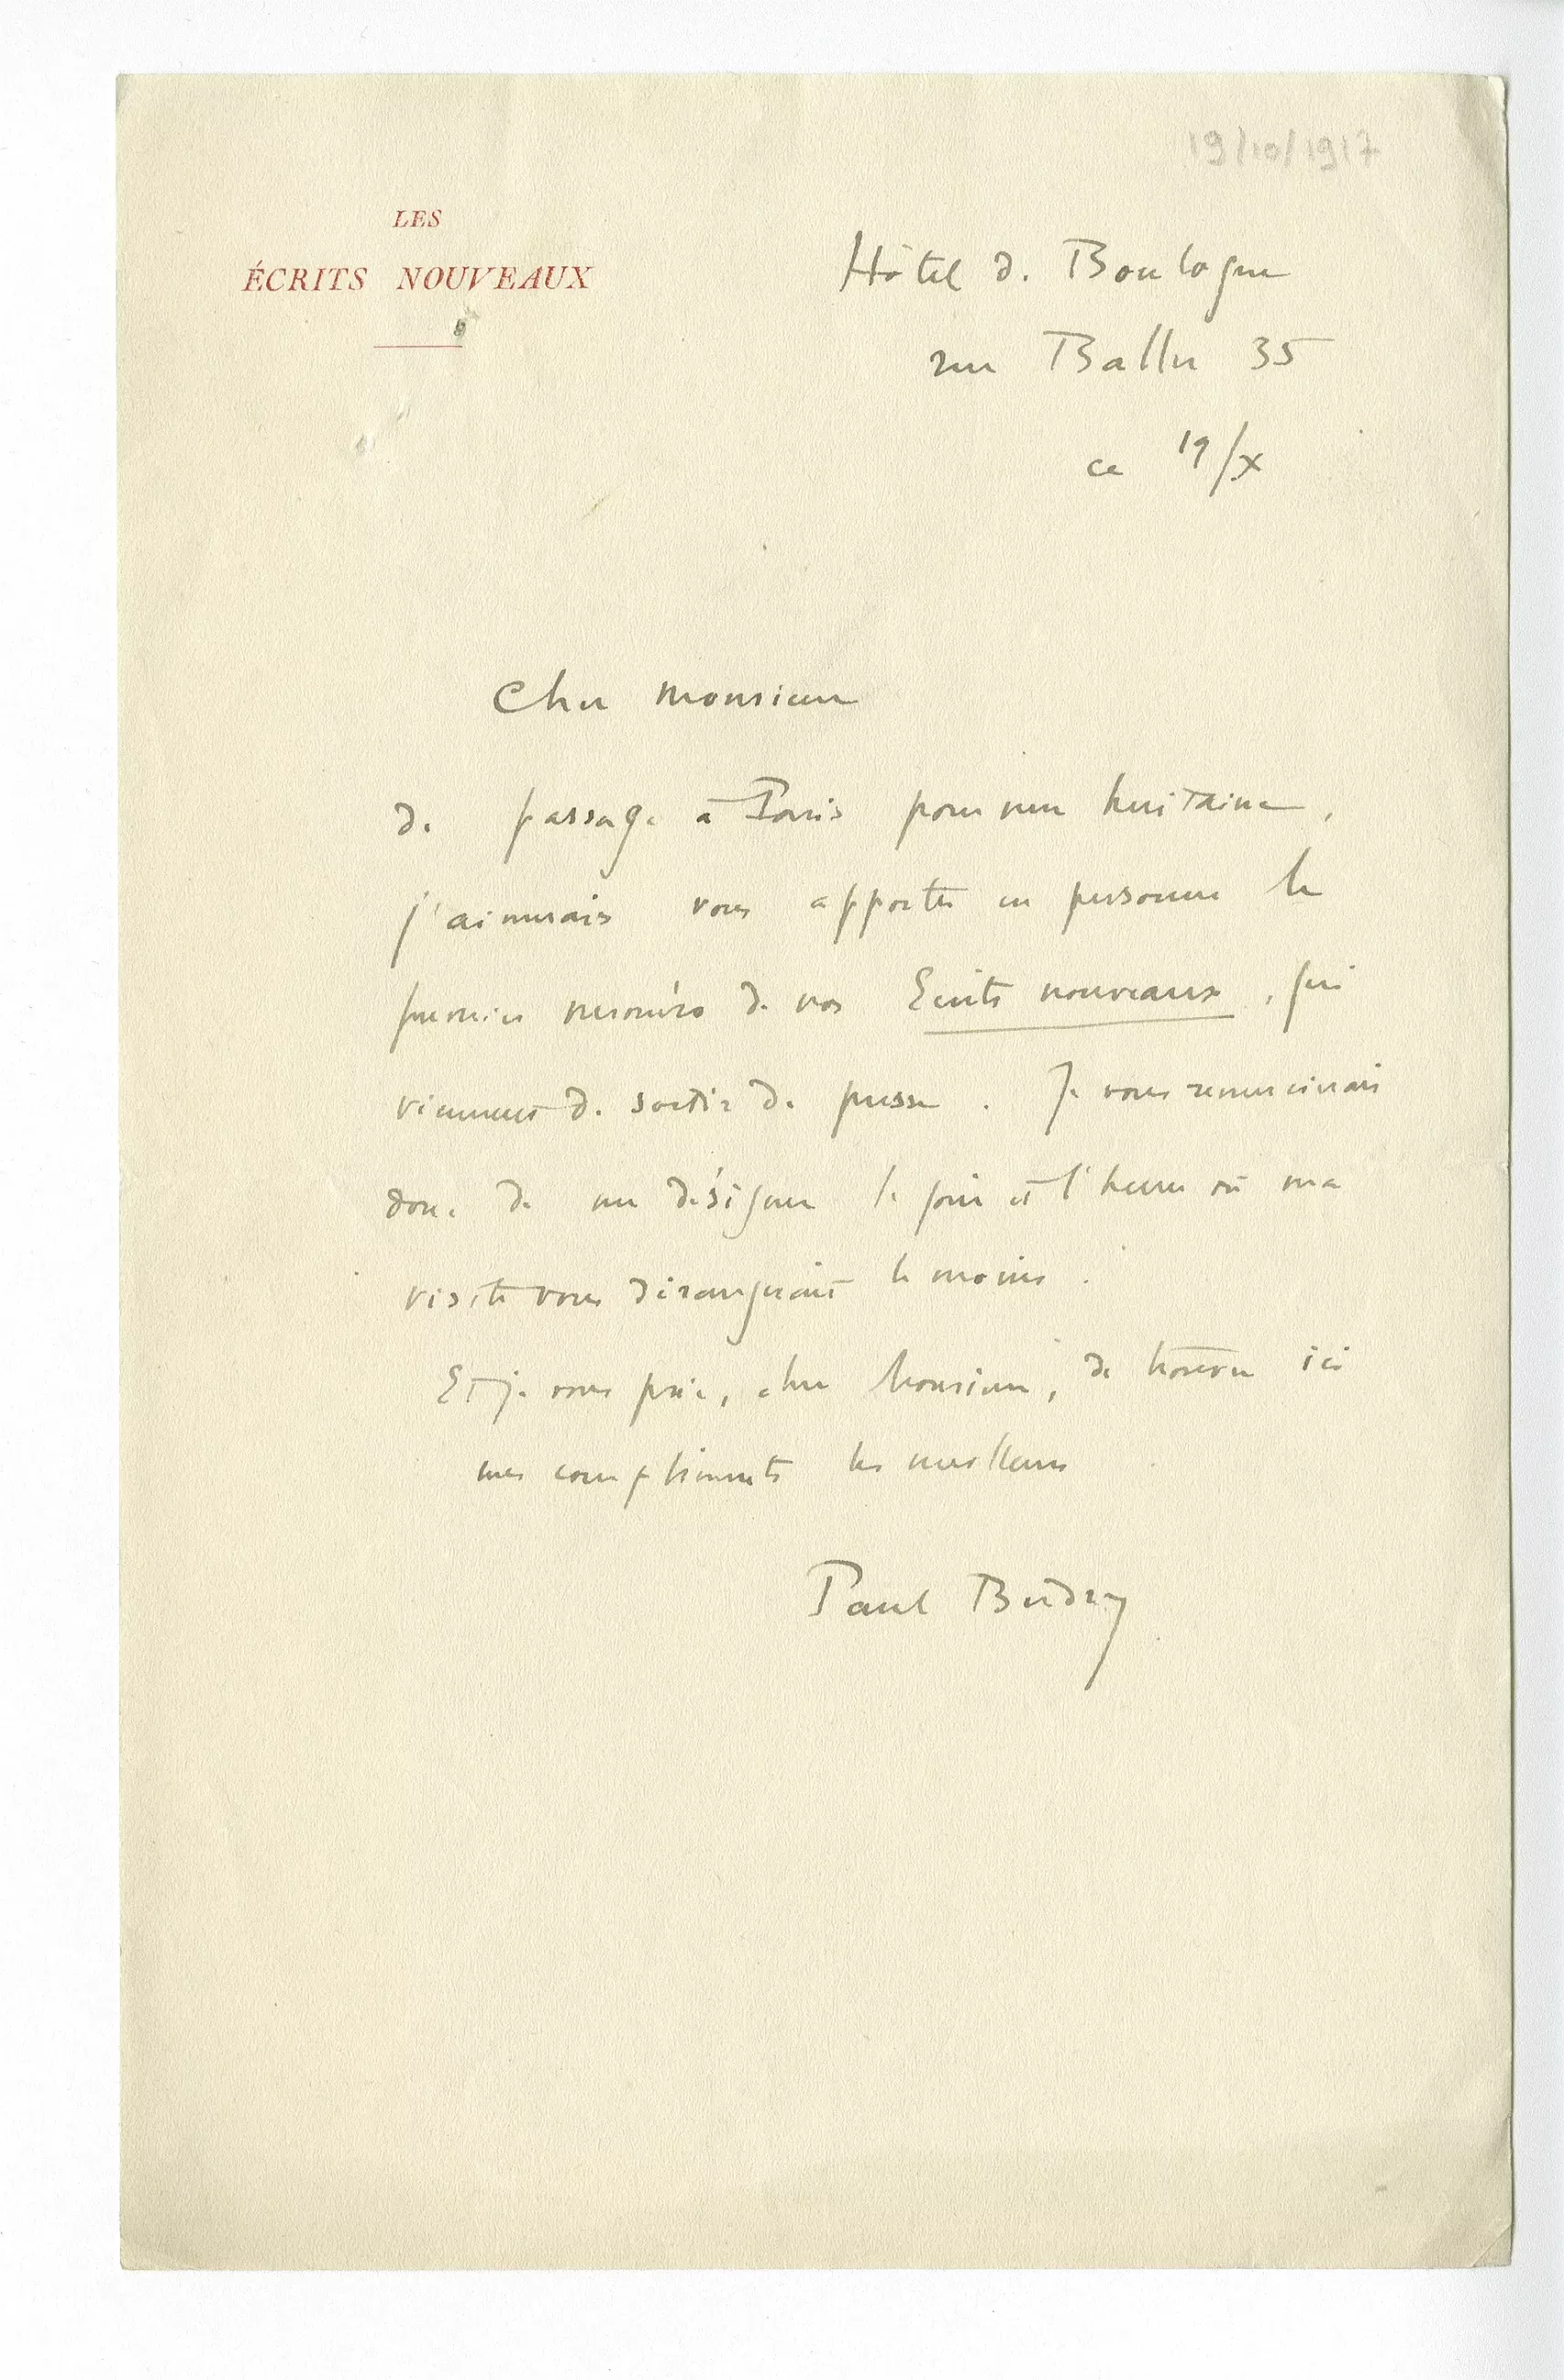 19/10/1917
LES
ÉCRITS NOUVEAUX
Hôtel de Boulogne
rue Ballu 35
ce 19/X
Cher Monsieur
de passage à Paris pour une huitaine,
j'aimerais vous apporter en personne le
premier numéro de nos Ecrits nouveaux, qui
viennent de sortir de presse. Je vous remercierais
donc de me désigner le jour et l'heure où ma
visite vous dérangerait le moins.
Et je vous prie, cher Monsieur, de trouver ici
mes compliments les meilleurs
Paul Budry